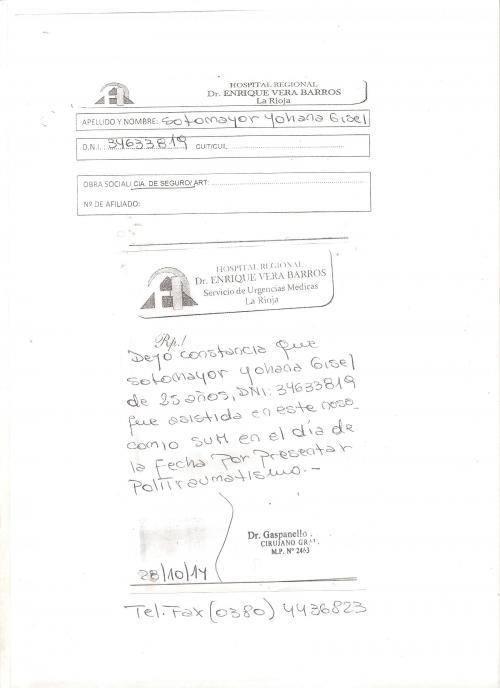 HOSPITAL REGIONAL
Dr. ENRIQUE VERA BARROS
La Rioja
APELLIDO Y NOMBRE: Sotomayor Yohana Gisel
D.N.I.: 34633819 CUIT/CUIL:
OBRA SOCIAL/ CIA. DE SEGURO/ ART:
Nº DE AFILIADO:
HOSPITAL REGIONAL
Dr. ENRIQUE VERA BARROS
Servicio de Urgencias Medicas
La Rioja
Rp./
Dejo constancia que
Sotomayor Yohana Gisel
de 25 años, DNI: 34633819
fue asistida en este noso_
comio SUM en el día de
la Fecha Por Presentar
Politraumatismo.-
Dr. Gaspanello
CIRUJANO GRAL.
M.P. Nº 2463
28/10/14
Tel.Fax (0380) 4436823